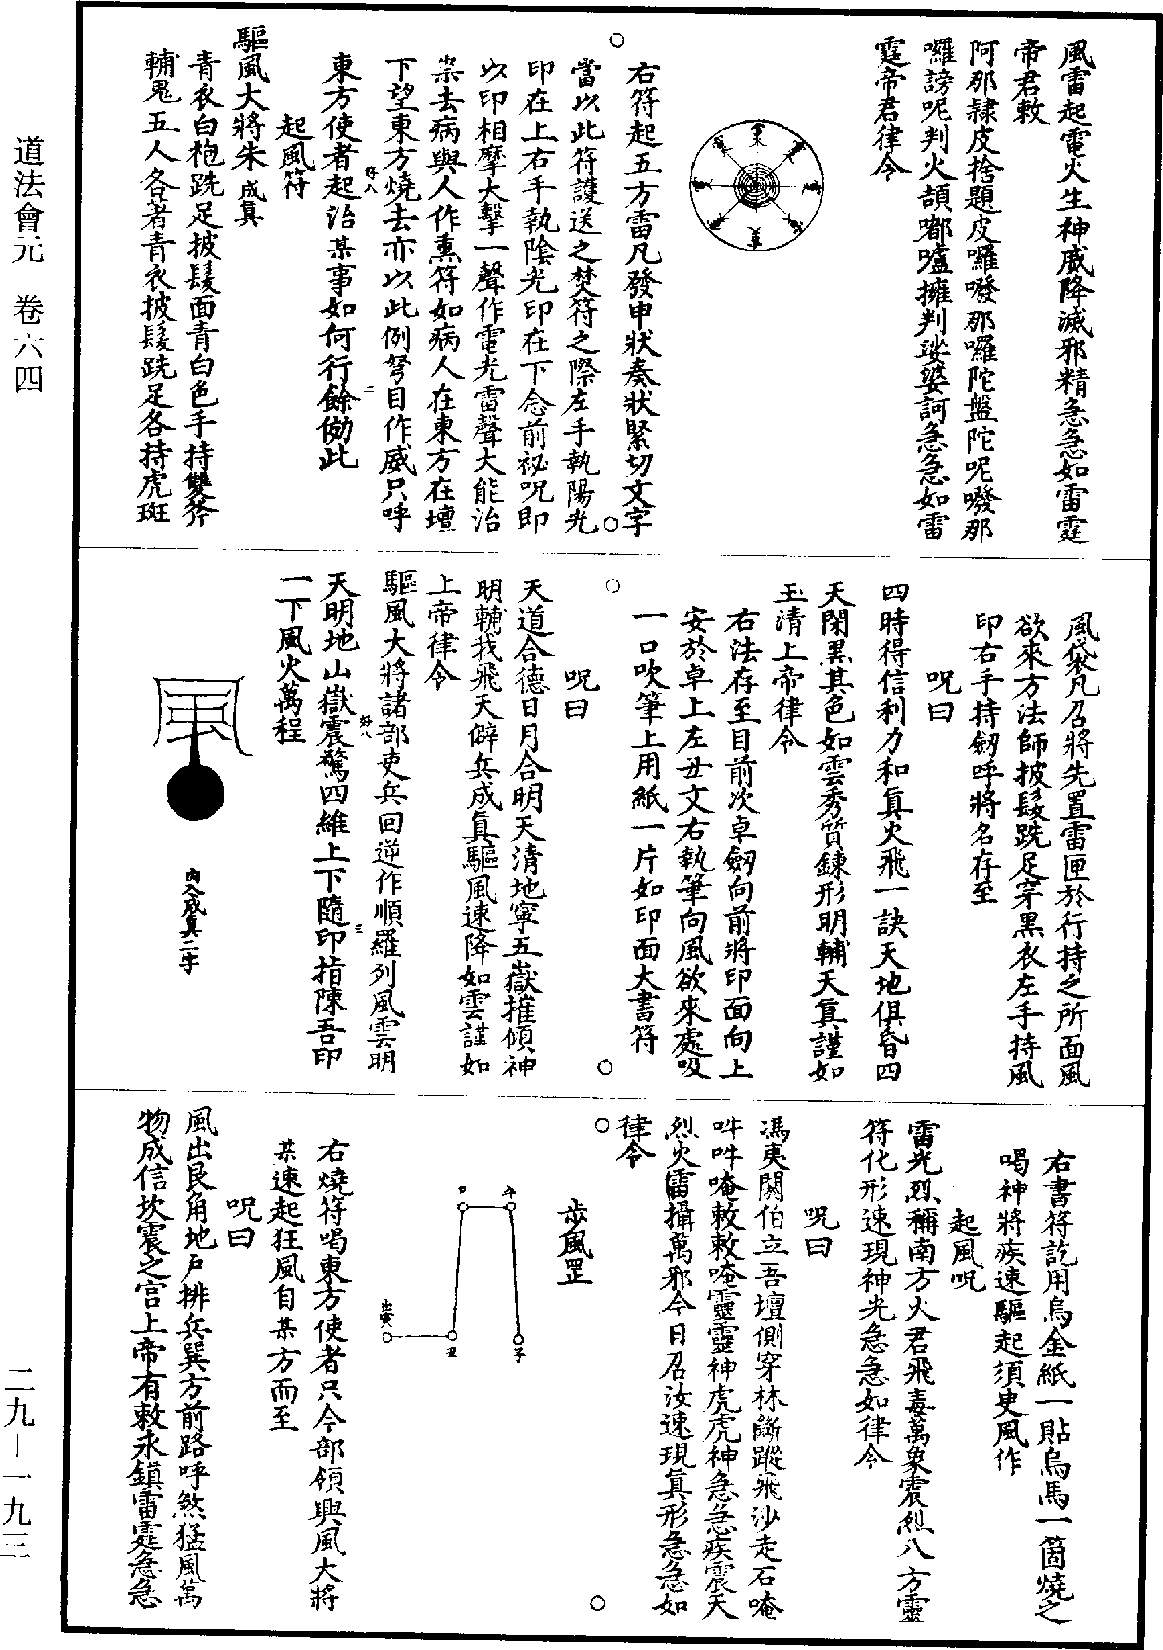 風雷起電火生神威降滅邪精急急如雷霆
帝君敕
阿那隷皮捨題皮囉㘑那囉陀盤陀呢㘑那
囉謗呢判火頡嘟嚧擁判娑婆訶急急如雷
霆帝君律令
右符起五方雷凡發申狀奏狀緊切文字
當以此符護送之焚符之際左手執陽光
印在上右手執陰光印在下念前祕呪即
以印相摩大擊一聲作電光雷聲大能治
祟去病與人作熏符如病人在東方在壇
下望東方燒去亦以此例努目作威只呼
東方使者起治某事如何行餘倣此
起風符
驅風大將朱成真
青衣白袍跣足披髮面青白色手持雙斧
輔鬼五人各著青衣披髮跣足各持虎斑
風袋凡召將先置雷匣於行持之所面風
欲來方法師披髮跣足穿黑衣左手持風
印右手持劒呼將名存至
呪曰
四時得信利力和真火飛一訣天地俱昏四
天閉黑其色如雲秀質鍊形明輔天真謹如
玉清上帝律令
右法存至目前次卓劒向前將印面向上
安於卓上左丑文右執筆向風欲來處吸
一口吹筆上用紙一片如印面大書符
呪曰
天道合德日月合明天清地寧五嶽摧傾神
明輔我飛天僻兵成真驅風速降如雲謹如
上帝律令
驅風大將諸部吏兵回逆作順羅列風雲明
天明地山嶽震驚四維上下隨印指陳吾印
一下風火萬程
内入成真二字
右書符訖用烏金紙一貼烏馬一箇燒之
喝神將疾速驅起須臾風作
起風呪
雷光烈稱南方火君飛毒萬象震烈八方靈
符化形速現神光急急如律令
呪曰
馮夷閼伯立吾壇側穿林斷蹤飛沙走石唵
吽吽唵敕敕唵靈靈神虎虎神急急疾震天
烈火雷攝萬邪今日召汝速現真形急急如
律令
步風罡
卯
斗
寅
丑
子
右燒符喝東方使者只今部領興風大將
某速起狂風自某方而至
呪曰
風出艮角地户排兵巽方前路呼煞猛風萬
物成信坎震之宫上帝有敕永鎮雷霆急急
道法會元 卷六四
二九－一九三